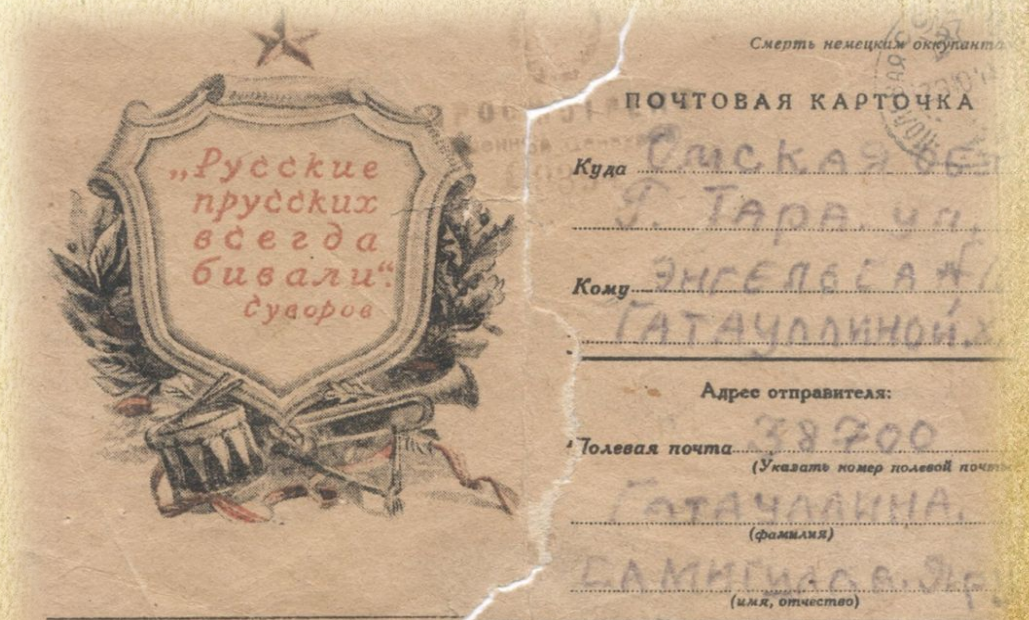 „Русские
прусских
всегда
бивали“.
Суворов
Смерть немецким
ПОЧТОВАЯ КАРТОЧКА
Куда Омская
Г. Тара. ул.
Кому Энгельса
Гатауллиной.
Адрес отправителя:
Полевая почта 38700
(Указать номер полевой
Гатауллина.
(фамилия)
(имя, отчество)